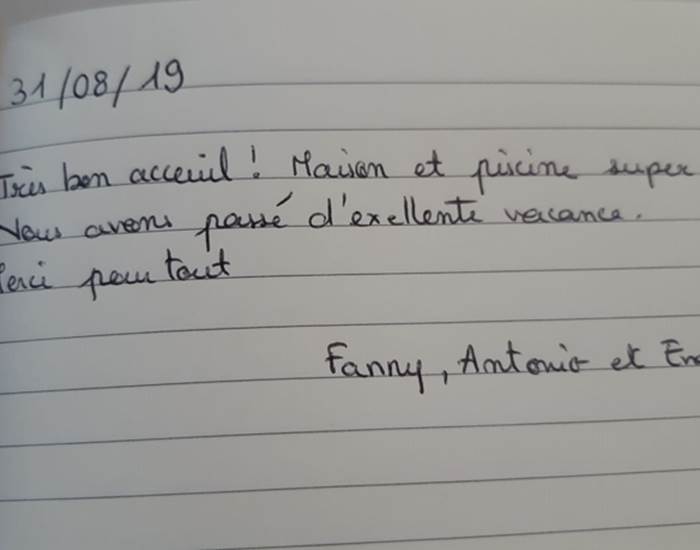 31/08/19
Très bon acceuil! Maison et piscine super
Nous avons passé d'exellente vacance.
Merci pour tout
Fanny, Antonio et